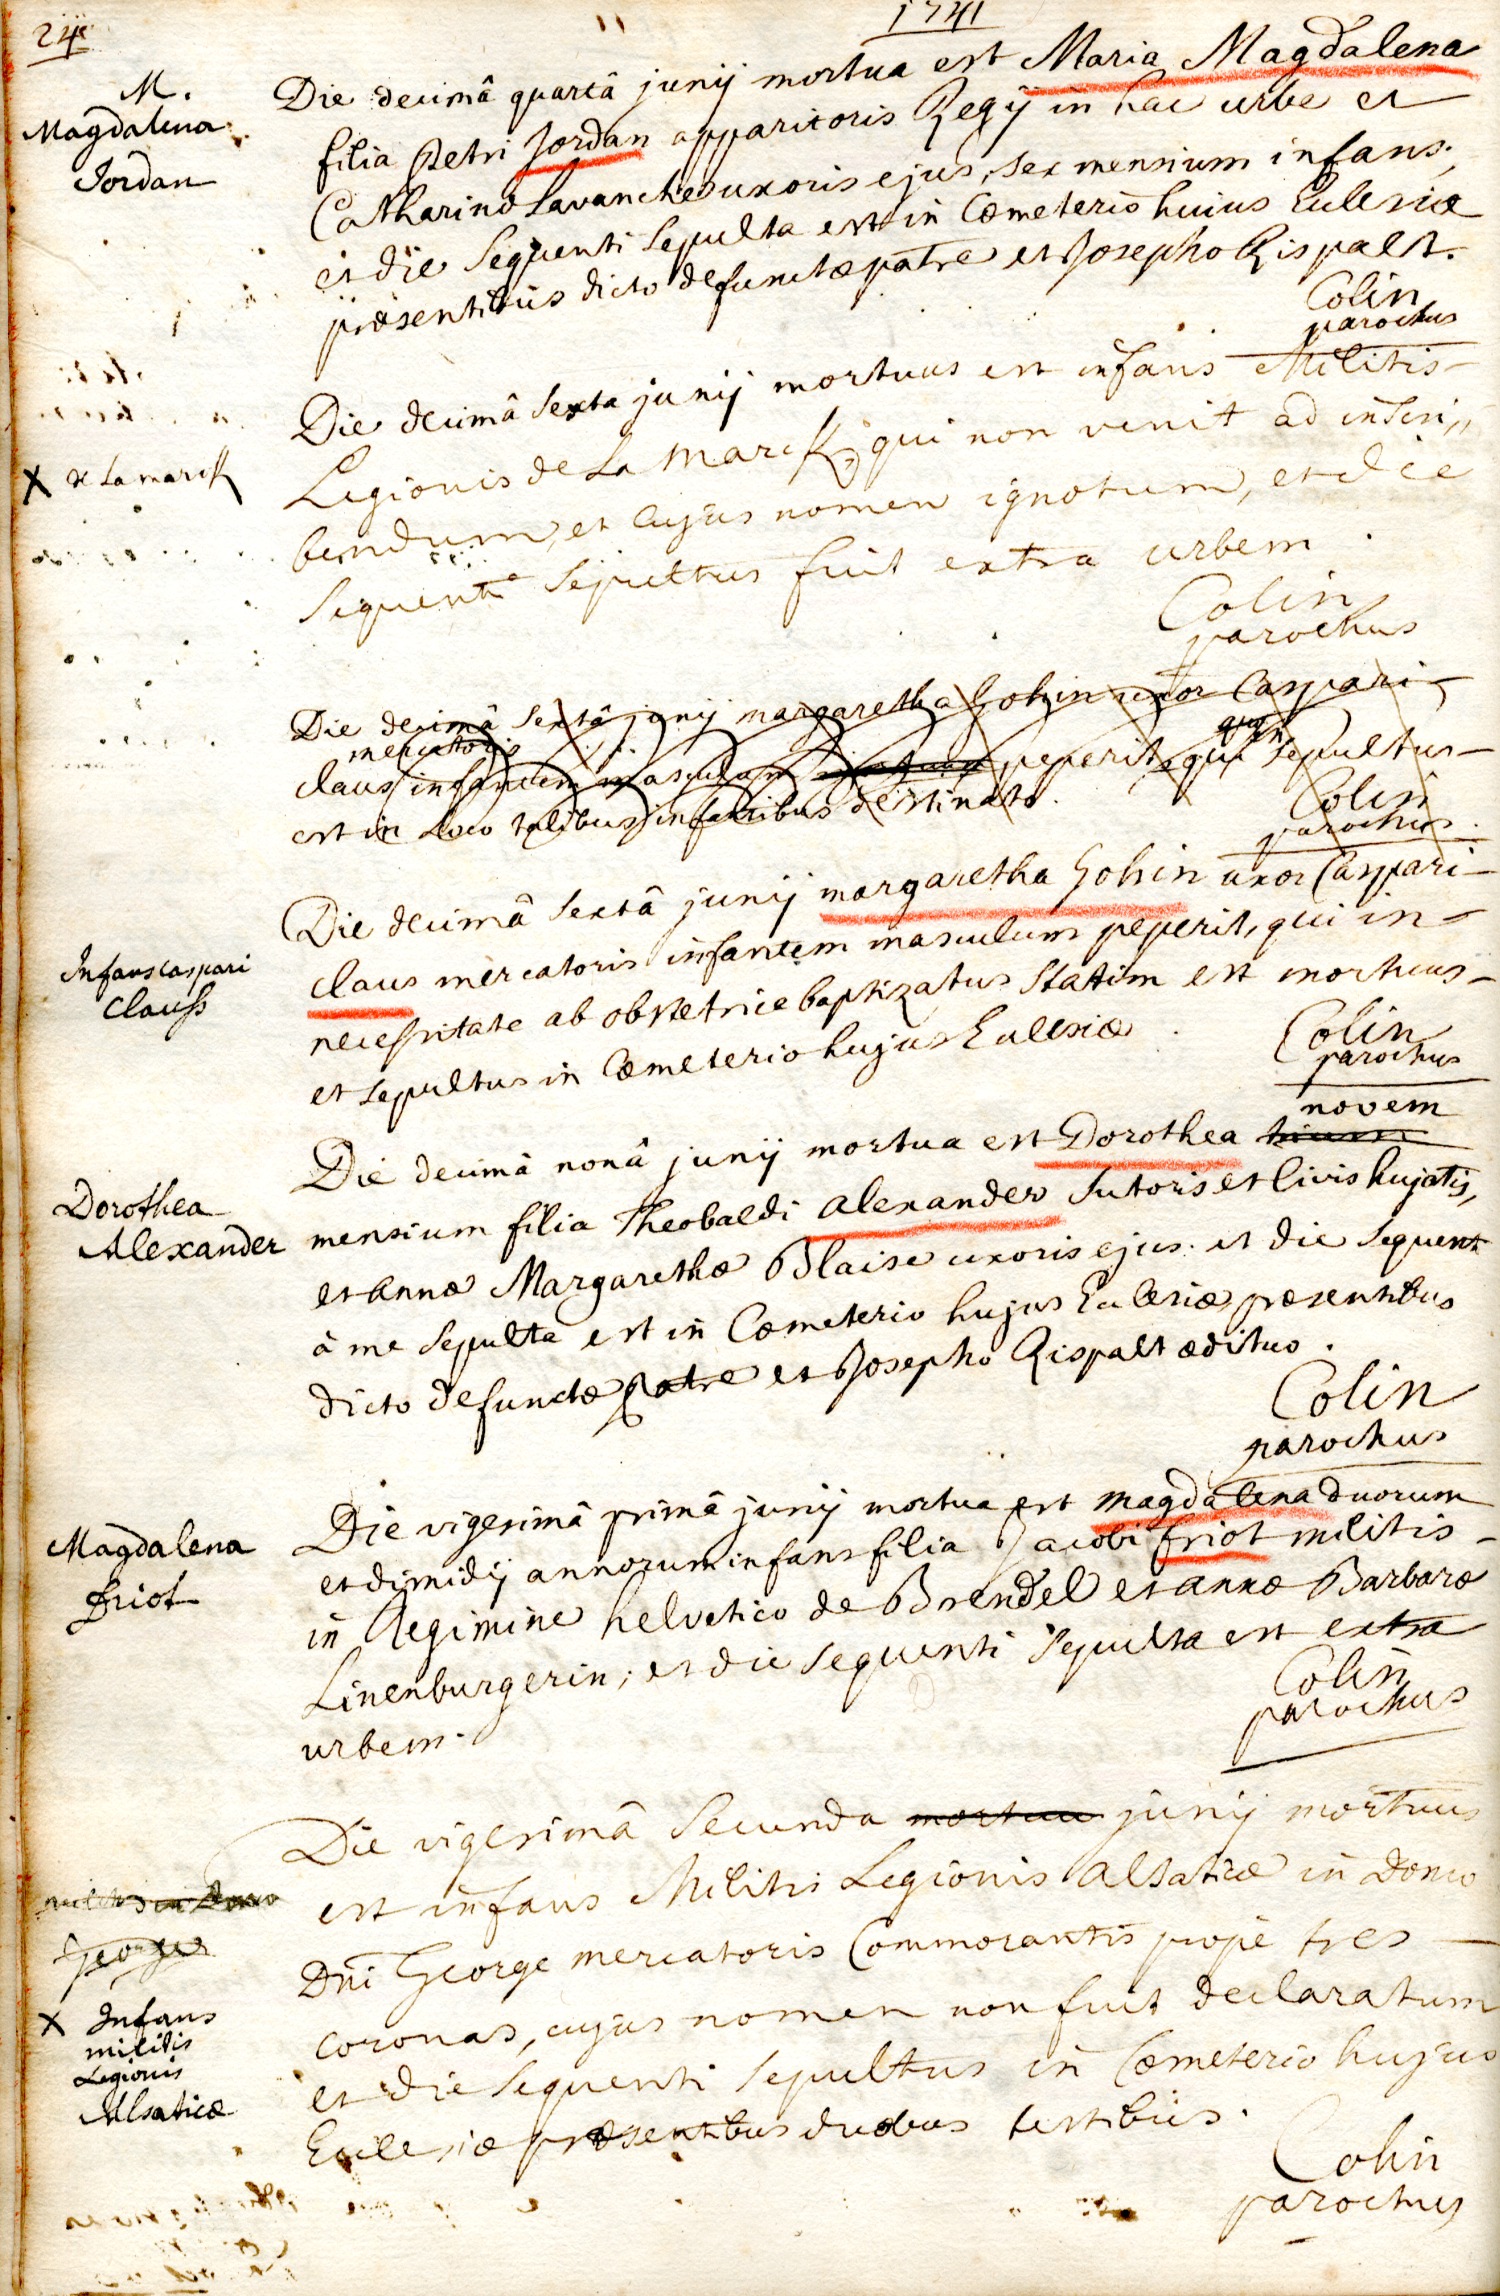 24
1741
M.
Magdalena
Jordan
Die decimâ quartâ junij mortua est Maria Magdalena
filia Petri Jordan apparitoris Regij in hac urbe et
Catharinæ Lavanche uxoris ejus, sex mensium infans,
et die sequenti sepulta est in Cœmeterio huius Ecclesiæ
præsentibus dicto defunctæ patre et Josepho Rispalt.
Colin
parochus
X de Lamarck
Die decimâ sexta junij mortuus est infans Militis
Legionis de La Marck, qui non venit ad inscri,,
bendum, et cujus nomen ignotum, et die
sequenti sepultus fuit extra urbem.
Colin
parochus
Die decimâ sextâ junij margaretha Gohin uxor Caspari
mercatoris
claus infantem masculum peperit, qui sepultus
est in loco talibus infantibus destinato.
Colin
parochus.
Infans caspari
Clauss
Die decimâ sextâ junij margaretha Gohin uxor Caspari
claus mercatoris infantem masculum peperit, qui in
necessitate ab obstetrice baptizatus statim est mortuus
et sepultus in Cœmeterio hujus Ecclesiæ.
Colin
parochus
Dorothea
Alexander
novem
Die decimâ nonâ junij mortua est Dorothea
mensium filia Theobaldi alexander sutoris et civis hujatis,
et annæ Margarethæ Blaise uxoris ejus. et die sequenti
à me sepulta est in Cœmeterio hujus Ecclesiæ, præsentibus
dicto defunctæ patre et Josepho Rispalt ædituo.
Colin
parochus
Magdalena
friot
Die vigesimâ primâ junij mortua est magdalena duorum
et dimidij annorum infans filia Jacobi friot militis
in Regimine helvetico de Brendel et annæ Barbaræ
Linenburgerin; et die sequenti sepulta est extra
urbem.
Colin
parochus
George
X Infans
militis
Legionis
Alsaticæ
Die vigesimâ secunda mortuu junij mortuus
est infans Militis Legionis Alsaticæ in Domo
Dni George mercatoris Commorantis prope tres
coronas, cujus nomen non fuit declaratum
et die sequenti sepultus in Cœmeterio hujus
Ecclesiæ præsentibus duobus testibus.
Colin
parochus